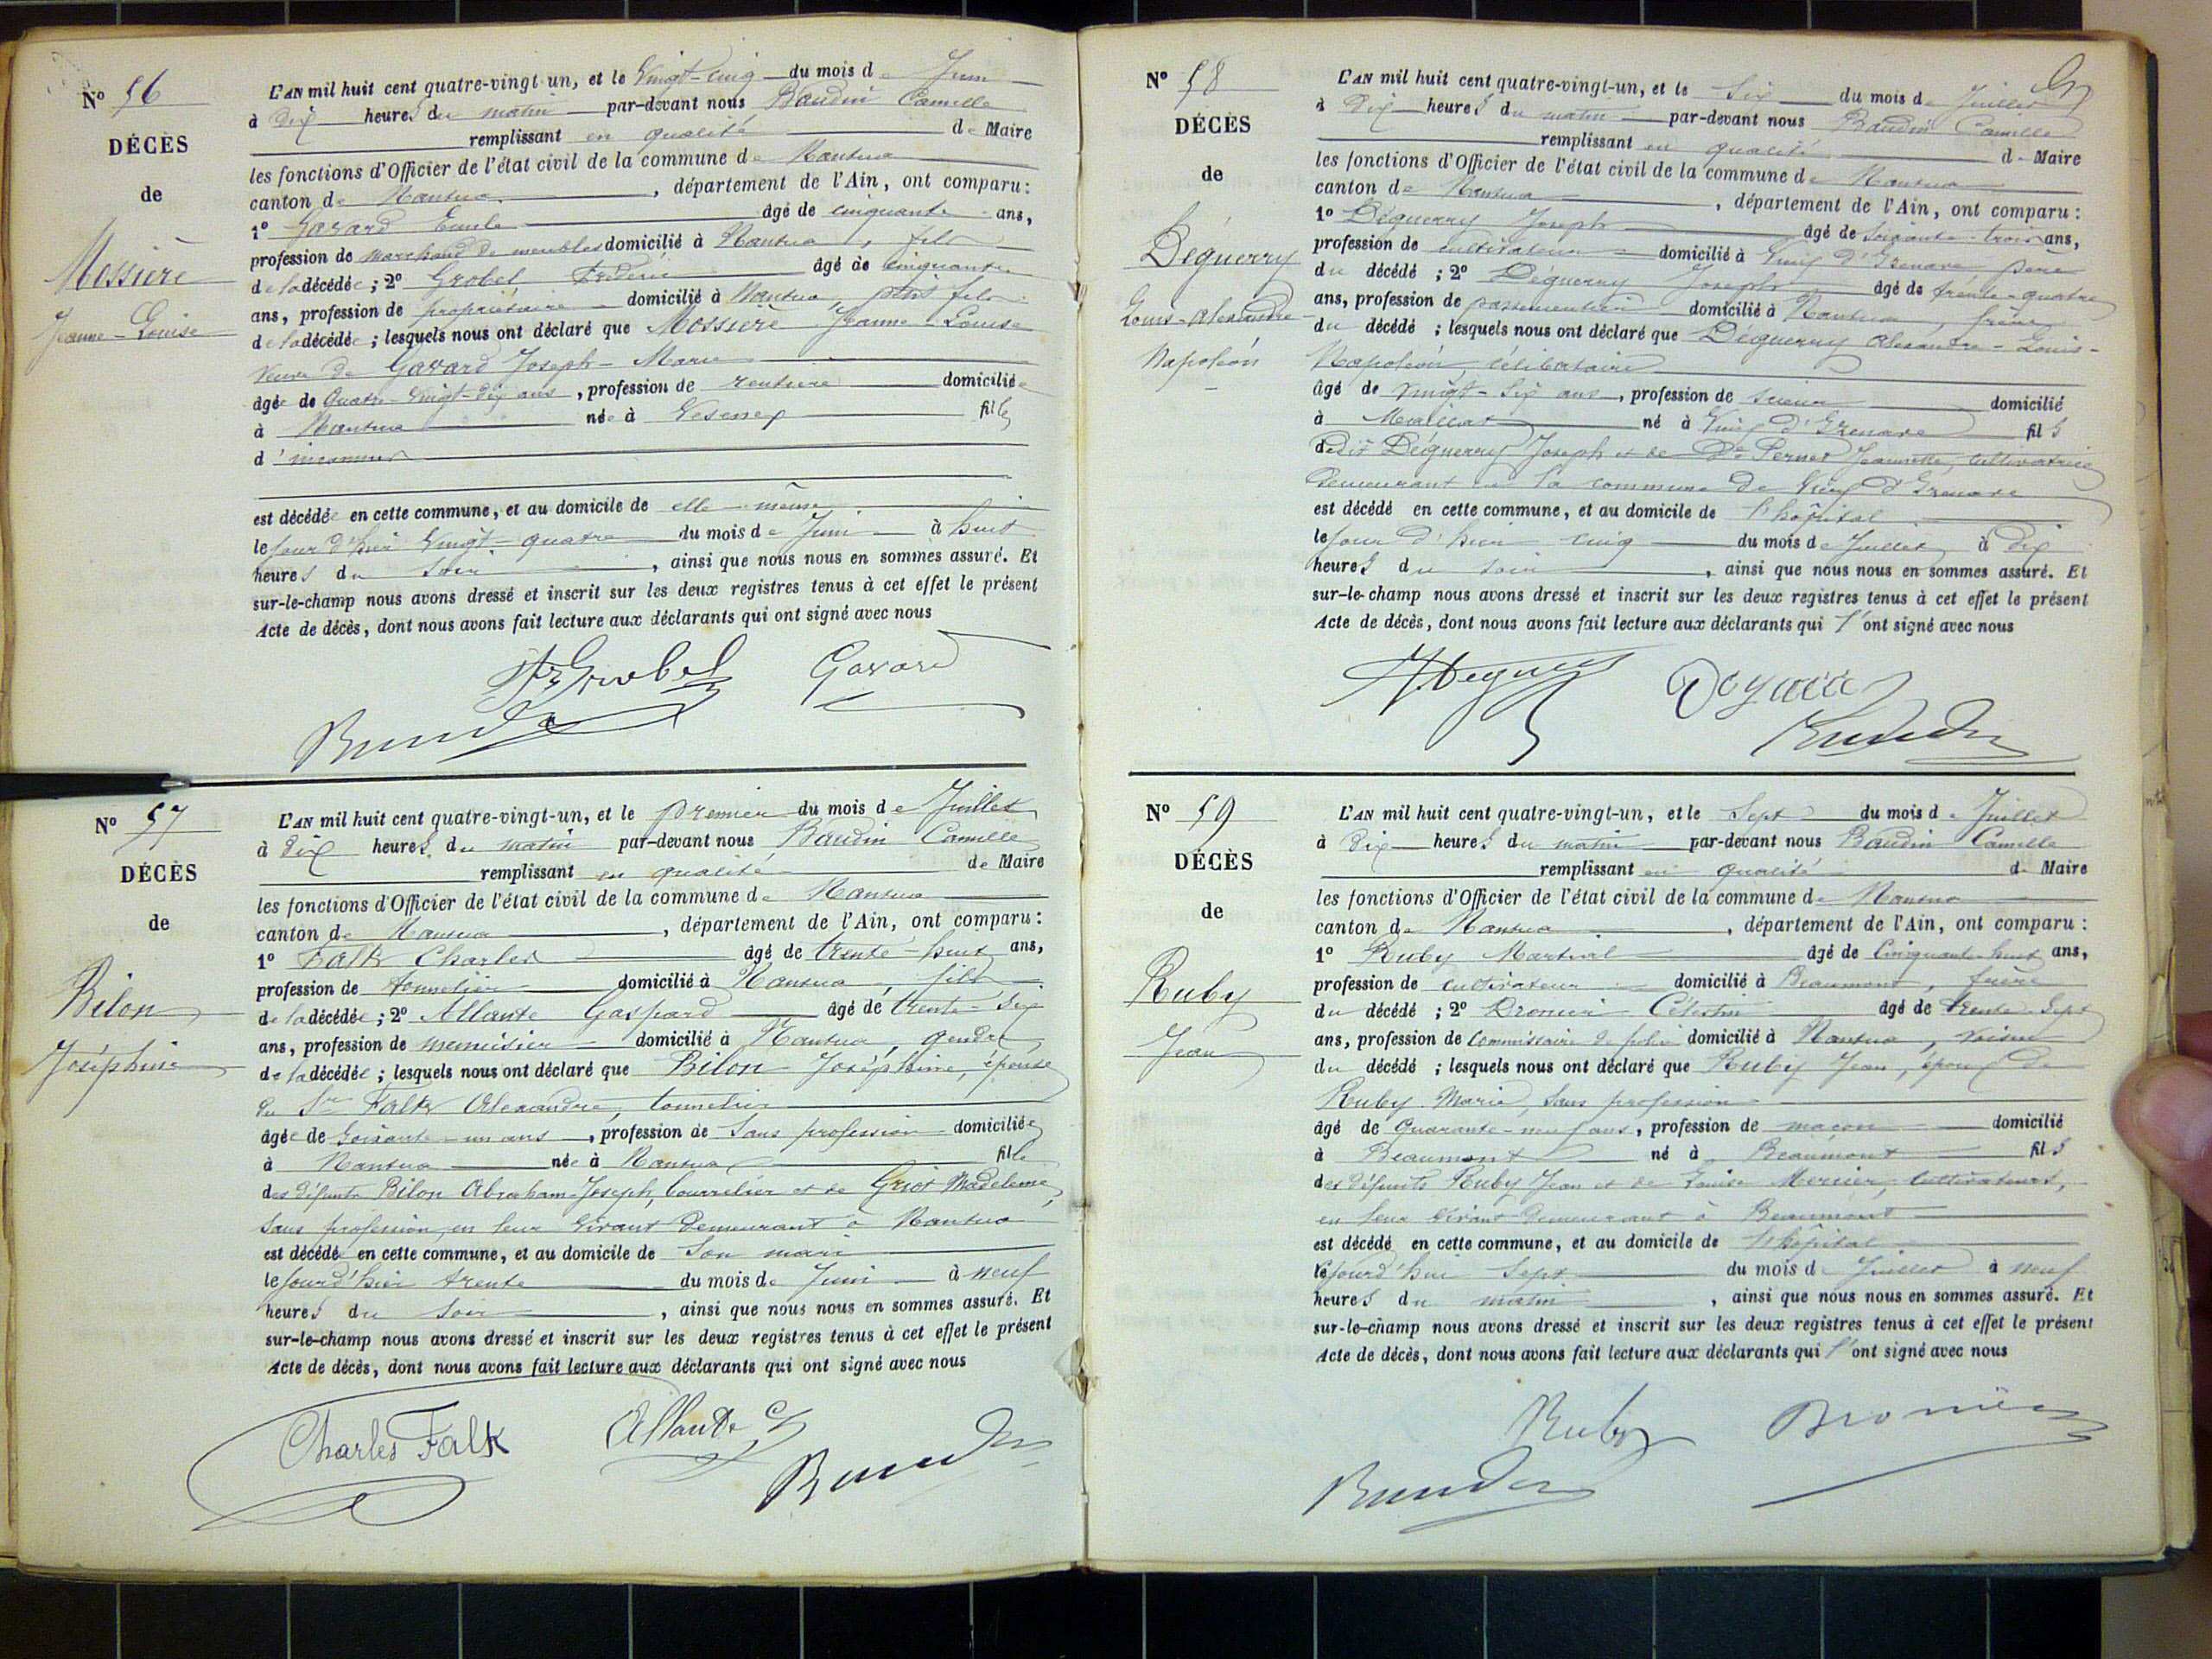 N° 56
DÉCÈS
de
Mossière
Jeanne-Louise
L'AN mil huit cent quatre-vingt-un, et le Vingt-cinq du mois de Juin
à Dix heures du matin par-devant nous Baudin Camille
remplissant en qualité de Maire
les fonctions d'Officier de l'état civil de la commune de Nantua
canton de Nantua, département de l'Ain, ont comparu:
1° Gavard Emile âgé de cinquante ans,
profession de marchand de meubles domicilié à Nantua, fils
de la décédée; 2° Grobel Frédéric âgé de cinquante
ans, profession de propriétaire domicilié à Nantua, fils
de la décédée; lesquels nous ont déclaré que Mossière Jeanne-Louise
veuve de Gavard Joseph-Marie
âgée de Quatre-vingt-dix ans, profession de rentière domiciliée
à Nantua née à Vesenex fille
d'inconnus
est décédée en cette commune, et au domicile de elle-même
le jour d'hier Vingt-quatre du mois de Juin à huit
heures du soir, ainsi que nous nous en sommes assuré. Et
sur-le-champ nous avons dressé et inscrit sur les deux registres tenus à cet effet le présent
Acte de décès, dont nous avons fait lecture aux déclarants qui ont signé avec nous
Fr Grobel Gavard
Baudin
N° 57
DÉCÈS
de
Bilon
Joséphine
L'AN mil huit cent quatre-vingt-un, et le premier du mois de Juillet
à Dix heures du matin par-devant nous Baudin Camille
remplissant en qualité de Maire
les fonctions d'Officier de l'état civil de la commune de Nantua
canton de Nantua, département de l'Ain, ont comparu:
1° Falk Charles âgé de trente-huit ans,
profession de tonnelier domicilié à Nantua, fils
de la décédée; 2° Allante Gaspard âgé de trente-six
ans, profession de menuisier domicilié à Nantua, gendre
de la décédée; lesquels nous ont déclaré que Bilon Joséphine, épouse
du Sr Falk Alexandre, tonnelier
âgée de soixante-un ans, profession de sans profession domiciliée
à Nantua née à Nantua fille
des défunts Bilon Abraham-Joseph, bourrelier et de Griot Madeleine,
sans profession, en leur vivant demeurant à Nantua
est décédé en cette commune, et au domicile de son mari
le jour d'hier trente du mois de Juin à neuf
heures du soir, ainsi que nous nous en sommes assuré. Et
sur-le-champ nous avons dressé et inscrit sur les deux registres tenus à cet effet le présent
Acte de décès, dont nous avons fait lecture aux déclarants qui ont signé avec nous
Charles Falk Allante
Baudin
N° 58
DÉCÈS
de
Déguerry
Louis-Alexandre
Napoléon
L'AN mil huit cent quatre-vingt-un, et le Six du mois de Juillet
à Dix heures du matin par-devant nous Baudin Camille
remplissant en qualité de Maire
les fonctions d'Officier de l'état civil de la commune de Nantua
canton de Nantua, département de l'Ain, ont comparu:
1° Déguerry Joseph âgé de soixante-trois ans,
profession de cultivateur domicilié à Vieu d'Izenave, père
du décédé; 2° Déguerry Joseph âgé de trente-quatre
ans, profession de passementier domicilié à Nantua, frère
du décédé; lesquels nous ont déclaré que Déguerry Alexandre-Louis-
Napoléon, célibataire
âgé de vingt-six ans, profession de scieur domicilié
à Maillat né à Vieu d'Izenave fils
dedit Déguerry Joseph et de De Pernet Jeannette, cultivatrice
demeurant en la commune de Vieu d'Izenave
est décédé en cette commune, et au domicile de l'hôpital
le jour d'hier cinq du mois de Juillet à dix
heures du soir, ainsi que nous nous en sommes assuré. Et
sur-le-champ nous avons dressé et inscrit sur les deux registres tenus à cet effet le présent
Acte de décès, dont nous avons fait lecture aux déclarants qui l'ont signé avec nous
Baudin
N° 59
DÉCÈS
de
Ruby
Jean
L'AN mil huit cent quatre-vingt-un, et le Sept du mois de Juillet
à Dix heures du matin par-devant nous Baudin Camille
remplissant en qualité de Maire
les fonctions d'Officier de l'état civil de la commune de Nantua
canton de Nantua, département de l'Ain, ont comparu:
1° Ruby Martial âgé de Cinquante-huit ans,
profession de cultivateur domicilié à Beaumont, frère
du décédé; 2° Dronier Célestin âgé de trente-sept
ans, profession de Commissaire de police domicilié à Nantua, voisin
du décédé; lesquels nous ont déclaré que Ruby Jean, époux de
Ruby Marie, sans profession
âgé de Quarante-neuf ans, profession de maçon domicilié
à Beaumont né à Beaumont fils
des défunts Ruby Jean et de Louise Mercier, cultivateurs,
en leur vivant demeurant à Beaumont
est décédé en cette commune, et au domicile de l'hôpital
le jourd'hui Sept du mois de Juillet à neuf
heures du matin, ainsi que nous nous en sommes assuré. Et
sur-le-champ nous avons dressé et inscrit sur les deux registres tenus à cet effet le présent
Acte de décès, dont nous avons fait lecture aux déclarants qui l'ont signé avec nous
Ruby Dronier
Baudin